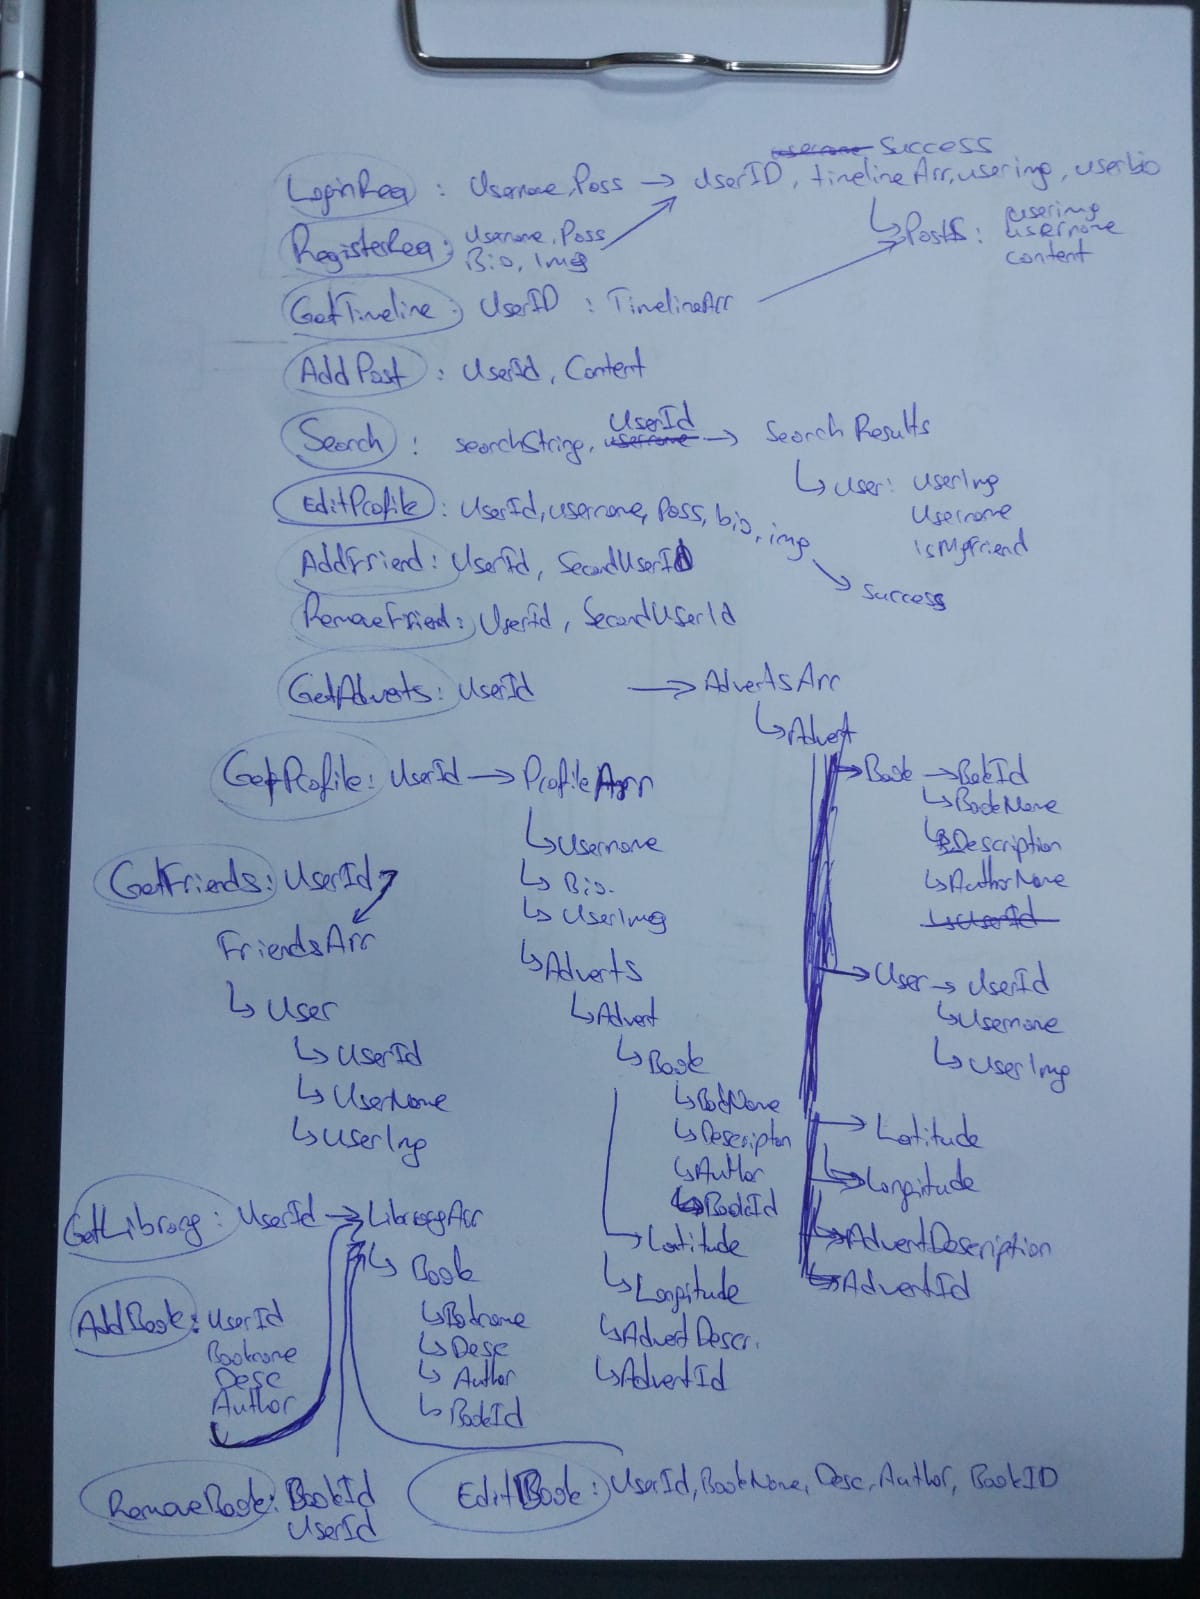 username Success
LoginReq : Username, Pass → UserID, timelineArr, userimg, userbio
RegisterReq : Username, Pass
Bio, Img
↳ Posts : userimg
username
content
GetTimeline : UserID : TimelineArr
Add Post : UserId, Content
Search : searchString, username UserId → Search Results
↳ user : userImg
Username
isMyFriend
EditProfile : UserId, username, Pass, bio, img
↘ success
AddFriend : UserId, SecondUserID
RemoveFriend : UserId, SecondUserId
GetAdverts : UserId → AdvertsArr
↳ Advert
→ Book → BookId
↳ BookName
↳ Description
↳ AuthorName
↳ UserId
→ User → UserId
↳ Username
↳ UserImg
→ Latitude
↳ Longitude
↳ AdvertDescription
↳ AdvertId
GetProfile : UserId → ProfileArr
↳ Username
↳ Bio.
↳ UserImg
↳ Adverts
↳ Advert
↳ Book
↳ BookName
↳ Description
↳ Author
↳ BookId
↳ Latitude
↳ Longitude
↳ Advert Descr.
↳ AdvertId
GetFriends : UserId
FriendsArr
↳ User
↳ UserId
↳ UserName
↳ UserImg
GetLibrary : UserId → LibraryArr
↳ Book
↳ Bookname
↳ Desc
↳ Author
↳ BookId
AddBook : UserId
Bookname
Desc
Author
RemoveBook : BookId
UserId
EditBook : UserId, BookName, Desc, Author, BookID